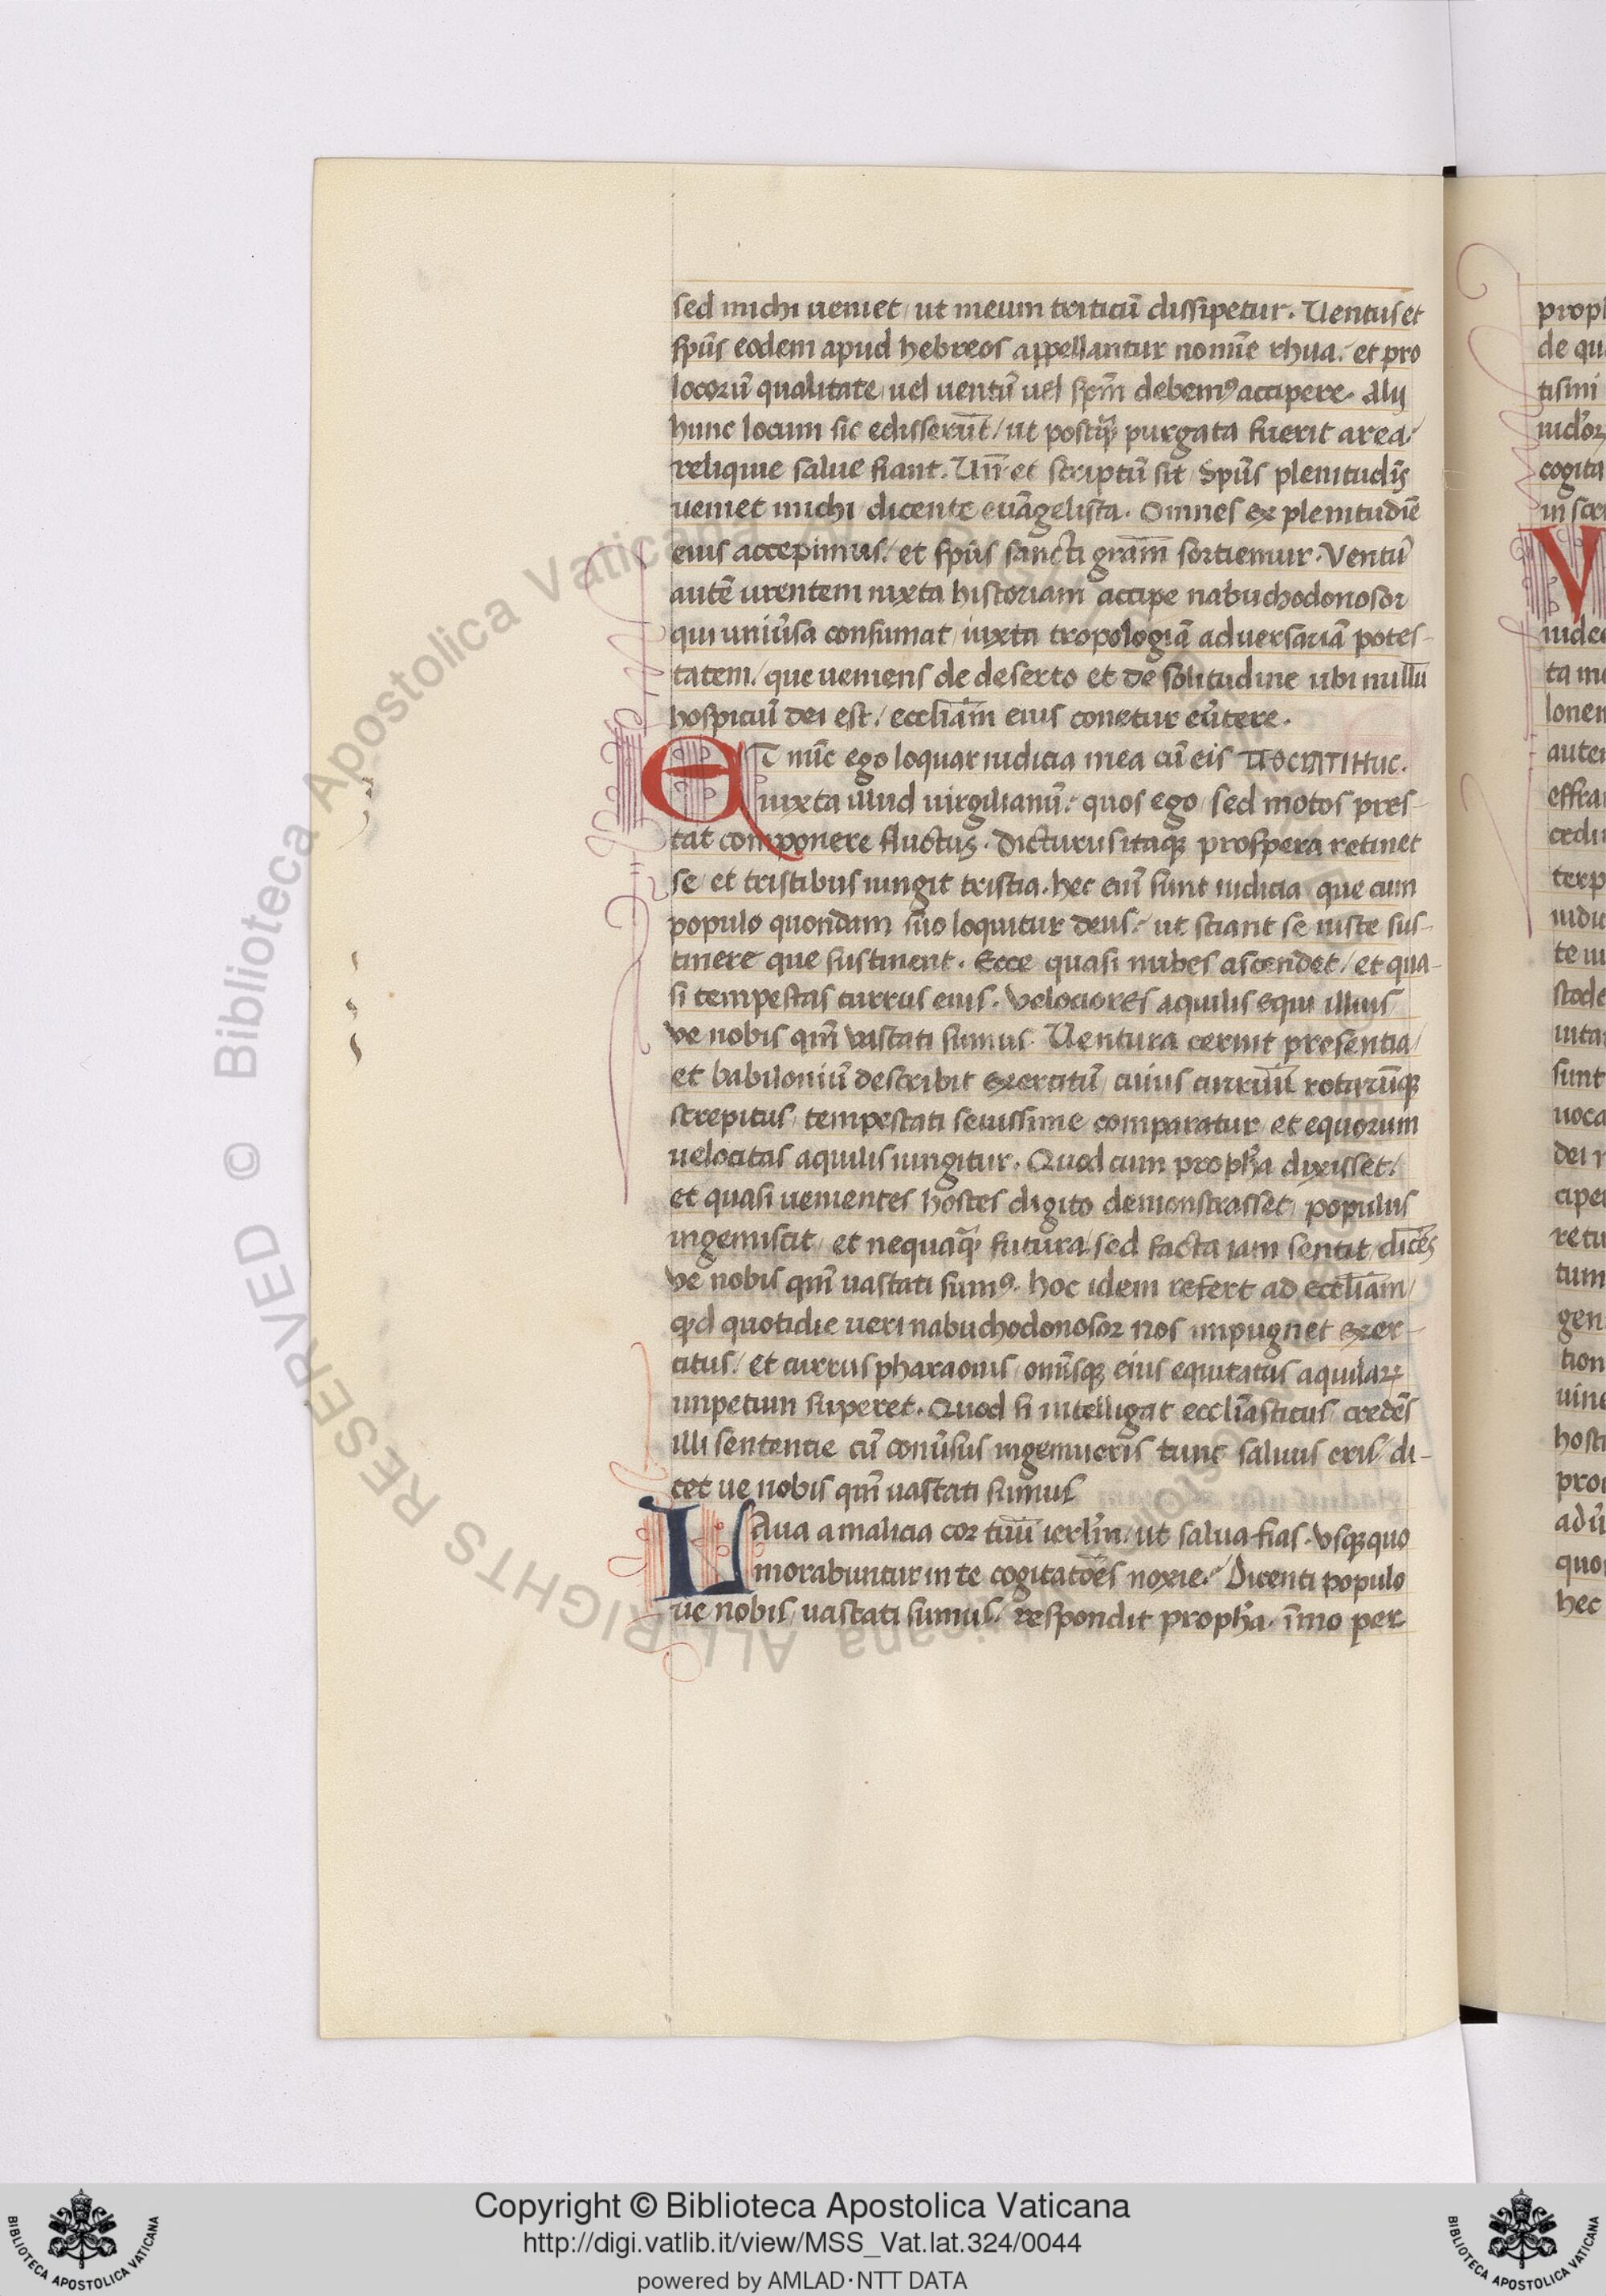 sed michi ueniet / ut meum triticũ dissipetur . Uentus et
sp̃us eodem apud hebreos appellantur nomĩe rhua . et pro
locorũ qualitate / uel uentũ uel sp̃m debemꝰ accipere . Alij
hunc locum sic edisserũt / ut postq̃ purgata fuerit area /
relique salue fiant . Uñ et scriptũ sit / Spũs plenitudĩs
ueniet michi / dicente euãgelista . Omnes ex plenitudĩe
eius accepimus / et spũs sancti gr̃am sortiemur . Ventũ
autẽ urentem iuxta historiam accipe nabuchodonosor
qui uniũsa consumat / iuxta tropologiã aduersariã potes-
tatem / que ueniens de deserto et de solitudine ubi nullũ
hospiciũ dei est / eccl̃iam eius conetur eũtere .
ET nũc ego loquar iudicia mea cũ eis VOCIATI HUC .
iuxta illud uirgilianũ . quos ego / sed motos pres-
tat componere fluctus . dicturus itaqꝫ prospera retinet
se / et tristibus iungit tristia . hec eni᷈ sunt iudicia / que cum
populo quondam suo loquitur deus . ut sciant se iuste sus-
tinere que sustinent . Ecce quasi nubes ascendet / et qua-
si tempestas currus eius . velociores aquilis equi illius
ve nobis qm̃ vastati sumus . Uentura cernit presentia /
et babiloniũ describit exercitũ / cuius curruũ rotarũqꝫ
strepitus / tempestati seuissime comparatur / et equorum
uelocitas aquilis iungitur . Quod cum proph̃a dixisset /
et quasi uenientes hostes digito demonstrasset / populus
ingemiscit / et nequaq̃ futura / sed facta iam sentit / dicẽs
ve nobis qm̃ uastati sumꝰ . hoc idem refert ad eccl̃iam /
qd quotidie ueri nabuchodonosor nos impugnet exer-
citus / et currus pharaonis / omĩsqꝫ eius equitatus aquilaꝝ
impetum superet . Quod si intelligat eccl̃iasticus / credẽs
illi sententie cũ conũsus ingemueris tunc saluus eris / di-
cet ue nobis qm̃ uastati sumus
LAua a malicia cor tuũ ierl̃m / ut salua fias . vsqꝫquo
morabuntur in te cogitatões noxie . Dicenti populo
ue nobis / uastati sumus . respondit proph̃a . ĩmo per
proph
de qu
tisini
cogita
in scri
V
iudee
lonem
autem
effra
terp
te iu
stode
iuta
sunt
uoca
dei n
retu
tum
gen
tion
uine
hosti
pro
adũ
quo
hec
© Biblioteca Apostolica Vaticana ALL RIGHTS RESERVED
Copyright © Biblioteca Apostolica Vaticana
http://digi.vatlib.it/view/MSS_Vat.lat.324/0044
powered by AMLAD·NTT DATA
BIBLIOTECA APOSTOLICA VATICANA
BIBLIOTECA APOSTOLICA VATICANA